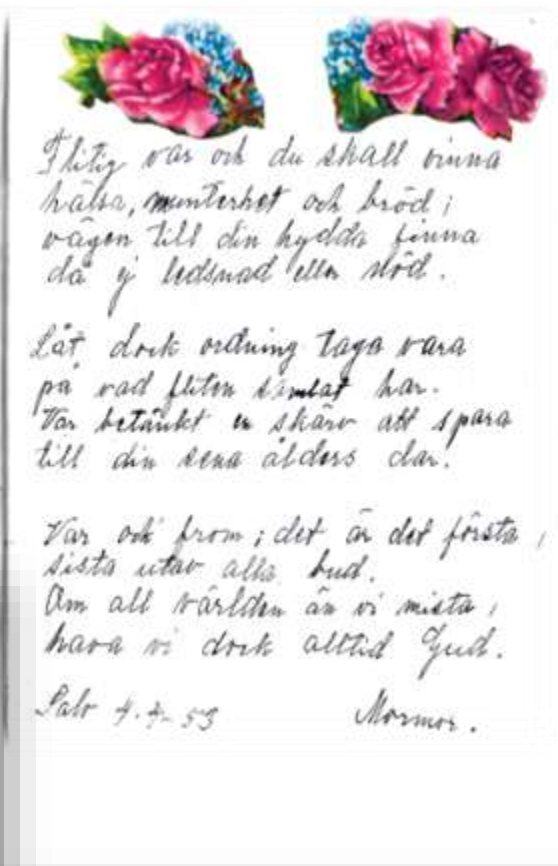 Flitig var och du skall vinna
hälsa, munterhet och bröd;
vägen till din hydda finna
då ej ledsnad eller nöd.
Låt dock ordning taga vara
på vad fliten samlat har.
Var betänkt en skärv att spara
till din sena ålders dar.
Var ock from; det är det första,
sista utav alla bud.
Om all världen än vi mista,
hava vi dock alltid Gud.
Salo 4.4-53
Mormor.